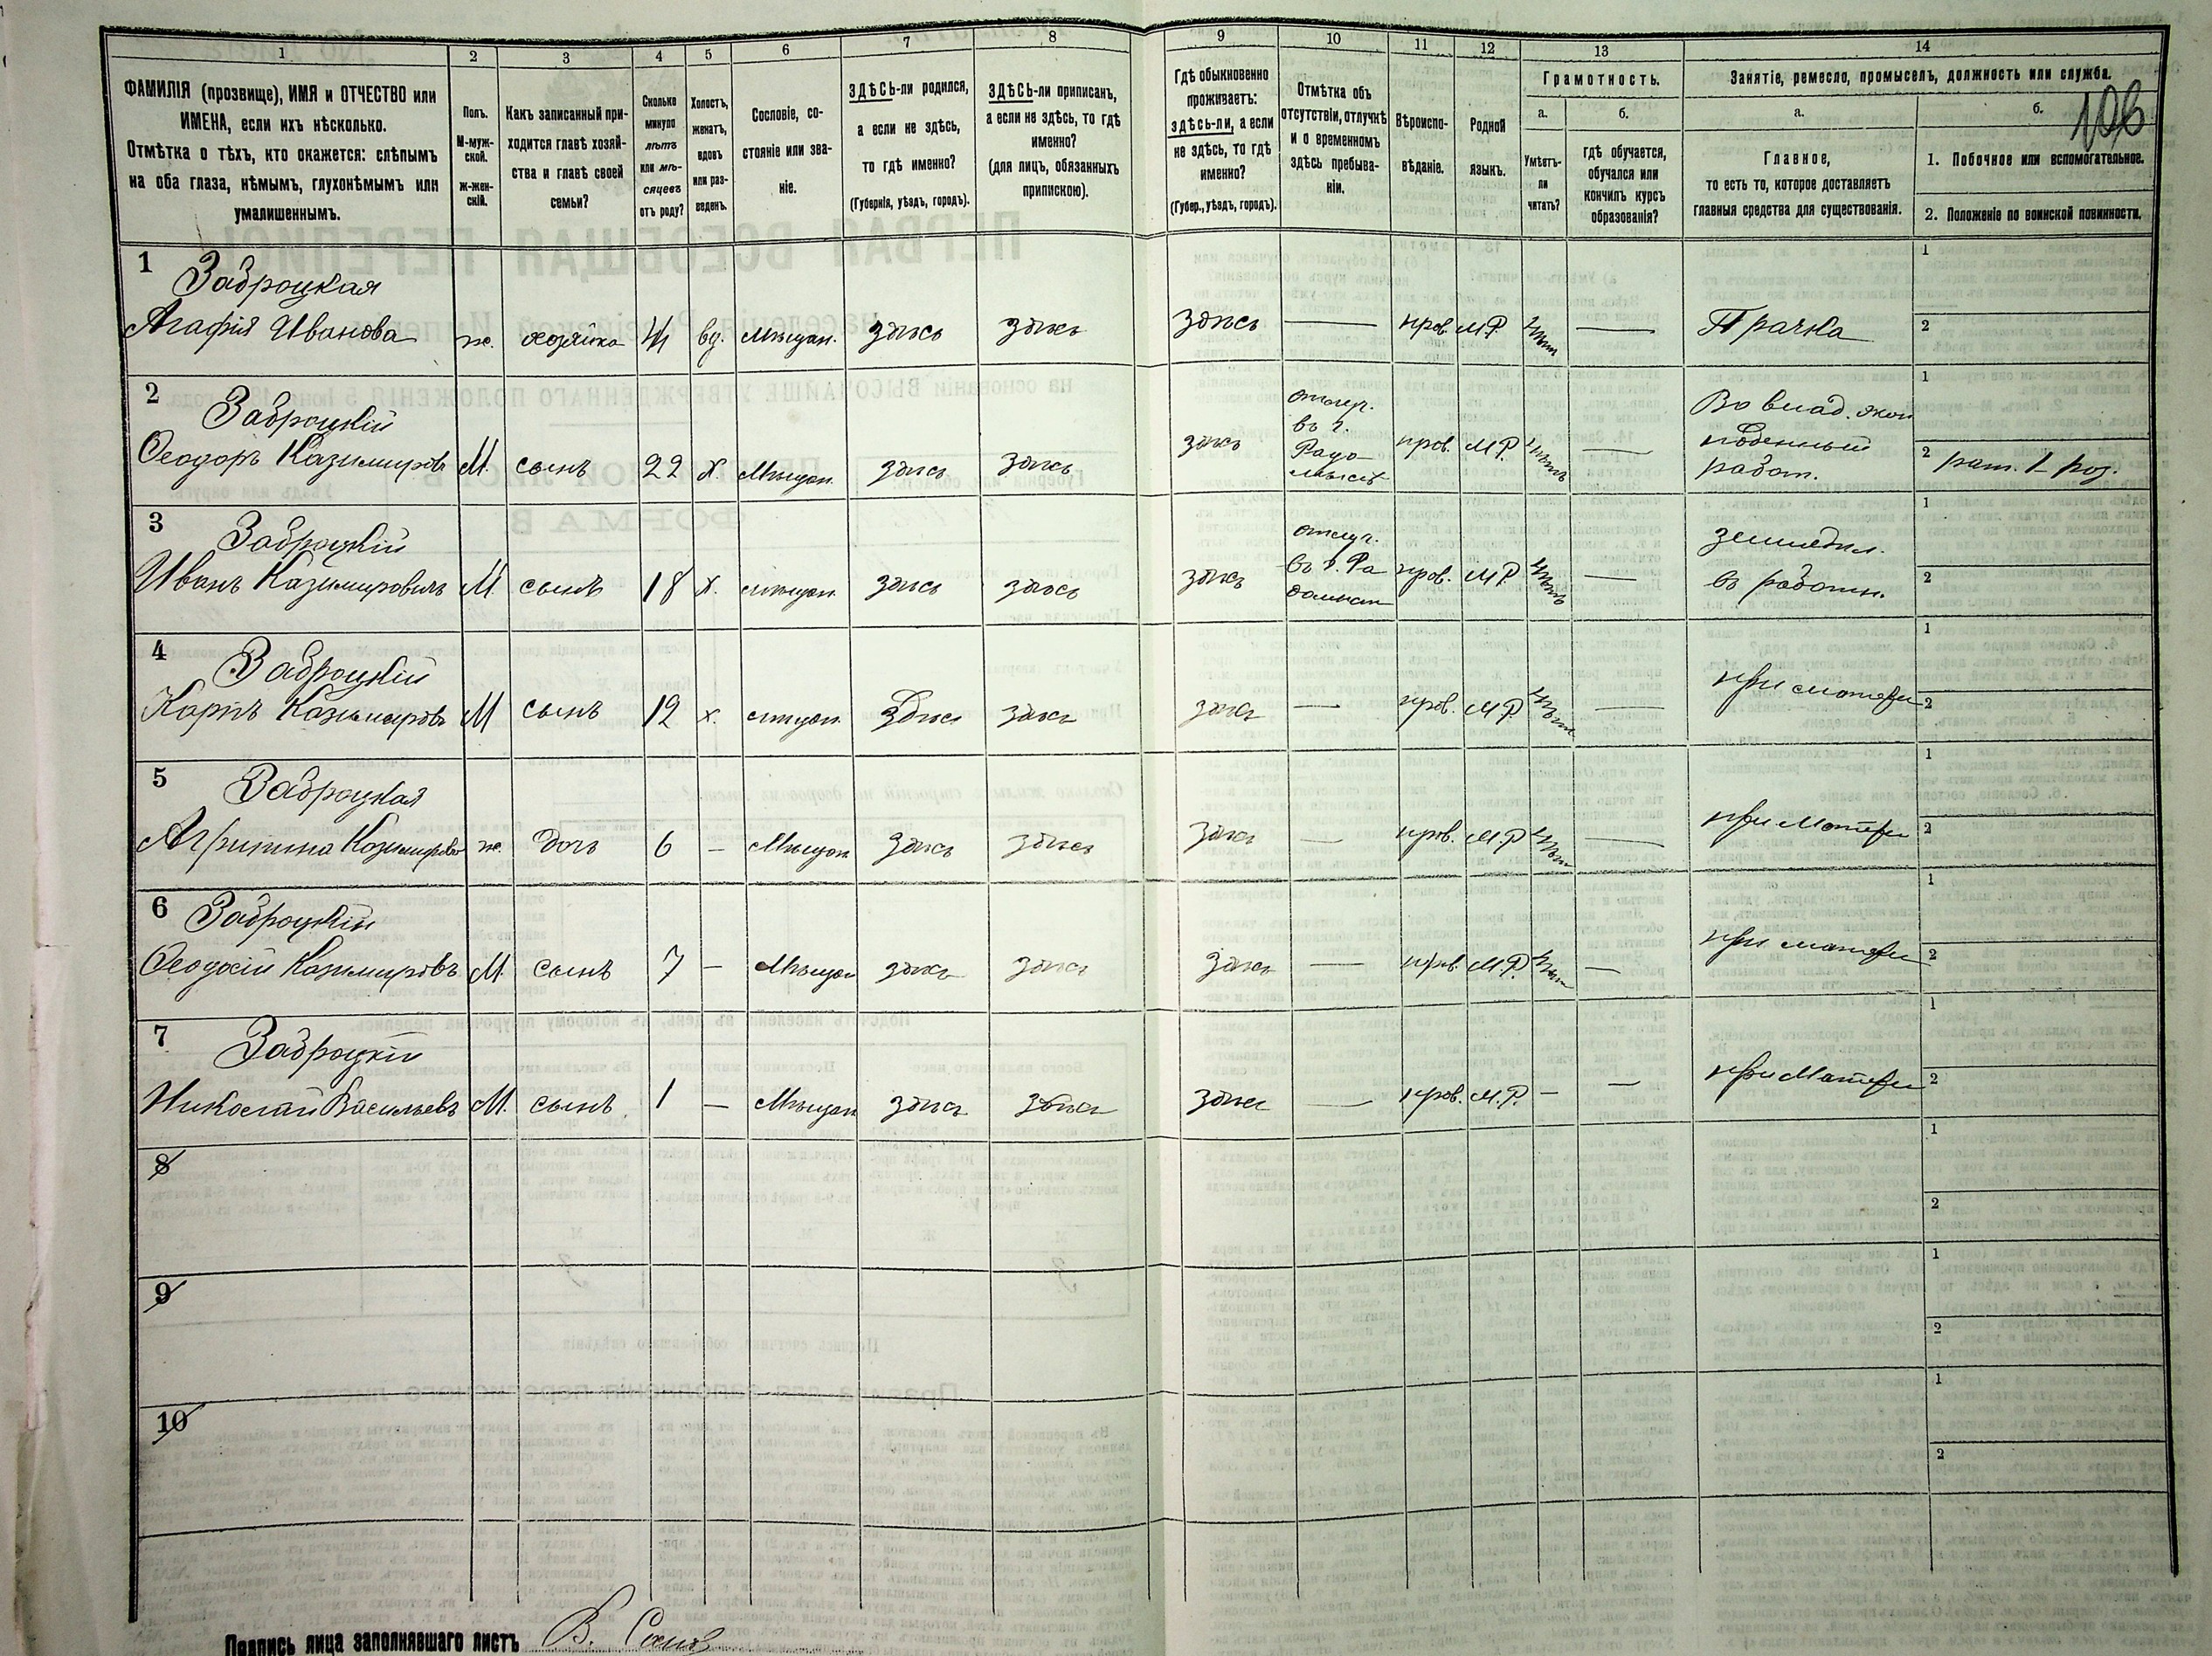 1 2 3 4 5 6 7 8 9 10 11 12 13 14
ФАМИЛІЯ (прозвище), ИМЯ и ОТЧЕСТВО или
ИМЕНА, если ихъ нѣсколько.
Отмѣтка о тѣхъ, кто окажется: слѣпымъ
на оба глаза, нѣмымъ, глухонѣмымъ или
умалишеннымъ.
Полъ.
М-муж-
ской.
ж-жен-
скій.
Какъ записанный при-
ходится главѣ хозяй-
ства и главѣ своей
семьи?
Сколько
минуло
лѣтъ
или мѣ-
сяцевъ
отъ роду?
Холостъ,
женатъ,
вдовъ
или раз-
веденъ.
Сословіе, со-
стояніе или зва-
ніе.
ЗДѢСЬ-ли родился,
а если не здѣсь,
то гдѣ именно?
(Губернія, уѣздъ, городъ).
ЗДѢСЬ-ли приписанъ,
а если не здѣсь, то гдѣ
именно?
(для лицъ, обязанныхъ
припискою).
Гдѣ обыкновенно
проживаетъ:
здѣсь-ли, а если
не здѣсь, то гдѣ
именно?
(Губер., уѣздъ, городъ).
Отмѣтка объ
отсутствіи, отлучкѣ
и о временномъ
здѣсь пребыва-
ніи.
Вѣроиспо-
вѣданіе.
Родной
языкъ.
Грамотность.
а.
Умѣетъ-
ли
читать?
б.
гдѣ обучается,
обучался или
кончилъ курсъ
образованія?
Занятіе, ремесло, промыселъ, должность или служба.
а.
Главное,
то есть то, которое доставляетъ
главныя средства для существованія.
б.
106
1. Побочное или вспомогательное.
2. Положеніе по воинской повинности.
1 Заброцкая
Агафія Иванова ж. хозяйка 41 вд. Мѣщан. здѣсь здѣсь здѣсь — прав. М.Р. нѣтъ — Прачка
1
2
2 Заброцкій
Ѳеодоръ Казимировъ М. сынъ 22 х. Мѣщан. здѣсь здѣсь здѣсь
отлуч.
въ г.
Радо-
мыслѣ
прав. М.Р. нѣтъ —
Во влад. экон
поденный
работ.
1
2 рат. 1 раз.
3 Заброцкій
Иванъ Казимировичъ М. сынъ 18 х. мѣщан. здѣсь здѣсь здѣсь
отлуч.
въ г. Ра
домысл
прав. М.Р. нѣтъ —
земледѣл.
въ работн.
1
2
4 Заброцкій
Карпъ Казимировъ М сынъ 12 х. мѣщан. здѣсь здѣсь здѣсь — прав. М.Р. нѣтъ — при матери
1
2
5 Заброцкая
Агрипина Казимирова ж. дочь 6 — Мѣщан здѣсь здѣсь здѣсь — прав. М.Р. нѣтъ — при Матери
1
2
6 Заброцкій
Ѳеодосій Казимировъ М. сынъ 7 — Мѣщан здѣсь здѣсь здѣсь — прав. М.Р. нѣтъ — при матери
1
2
7 Заброцкій
Николай Васильевъ М. сынъ 1 — Мѣщан здѣсь здѣсь здѣсь — прав. М.Р. — — при Матери
1
2
8
1
2
9
1
2
10
1
2
Подпись лица заполнявшаго листъ В.